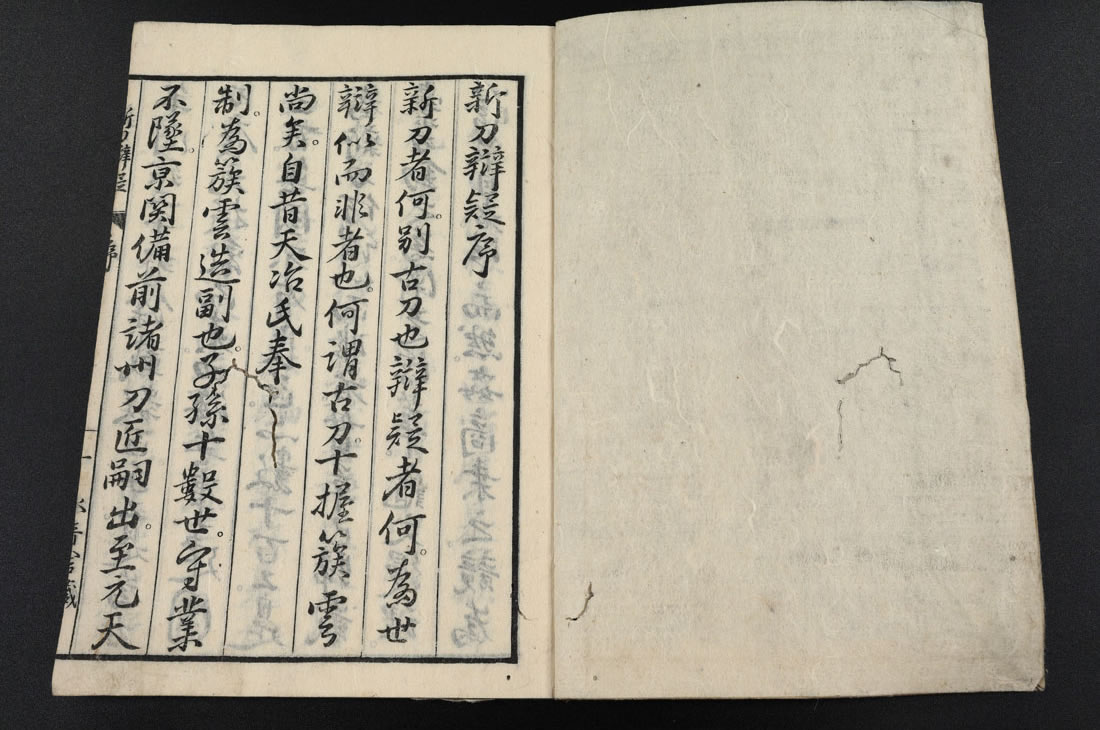 新刀辯疑序
新刀者何。別古刀也辯疑者何。為世
辯似而非者也。何謂古刀。十握簇雲
尚矣。自昔天冶氏奉
制。為簇雲造副也。子孫十數世。守業
不墜京関備前諸州刀匠嗣出。至元天
新刀辯疑
序
一